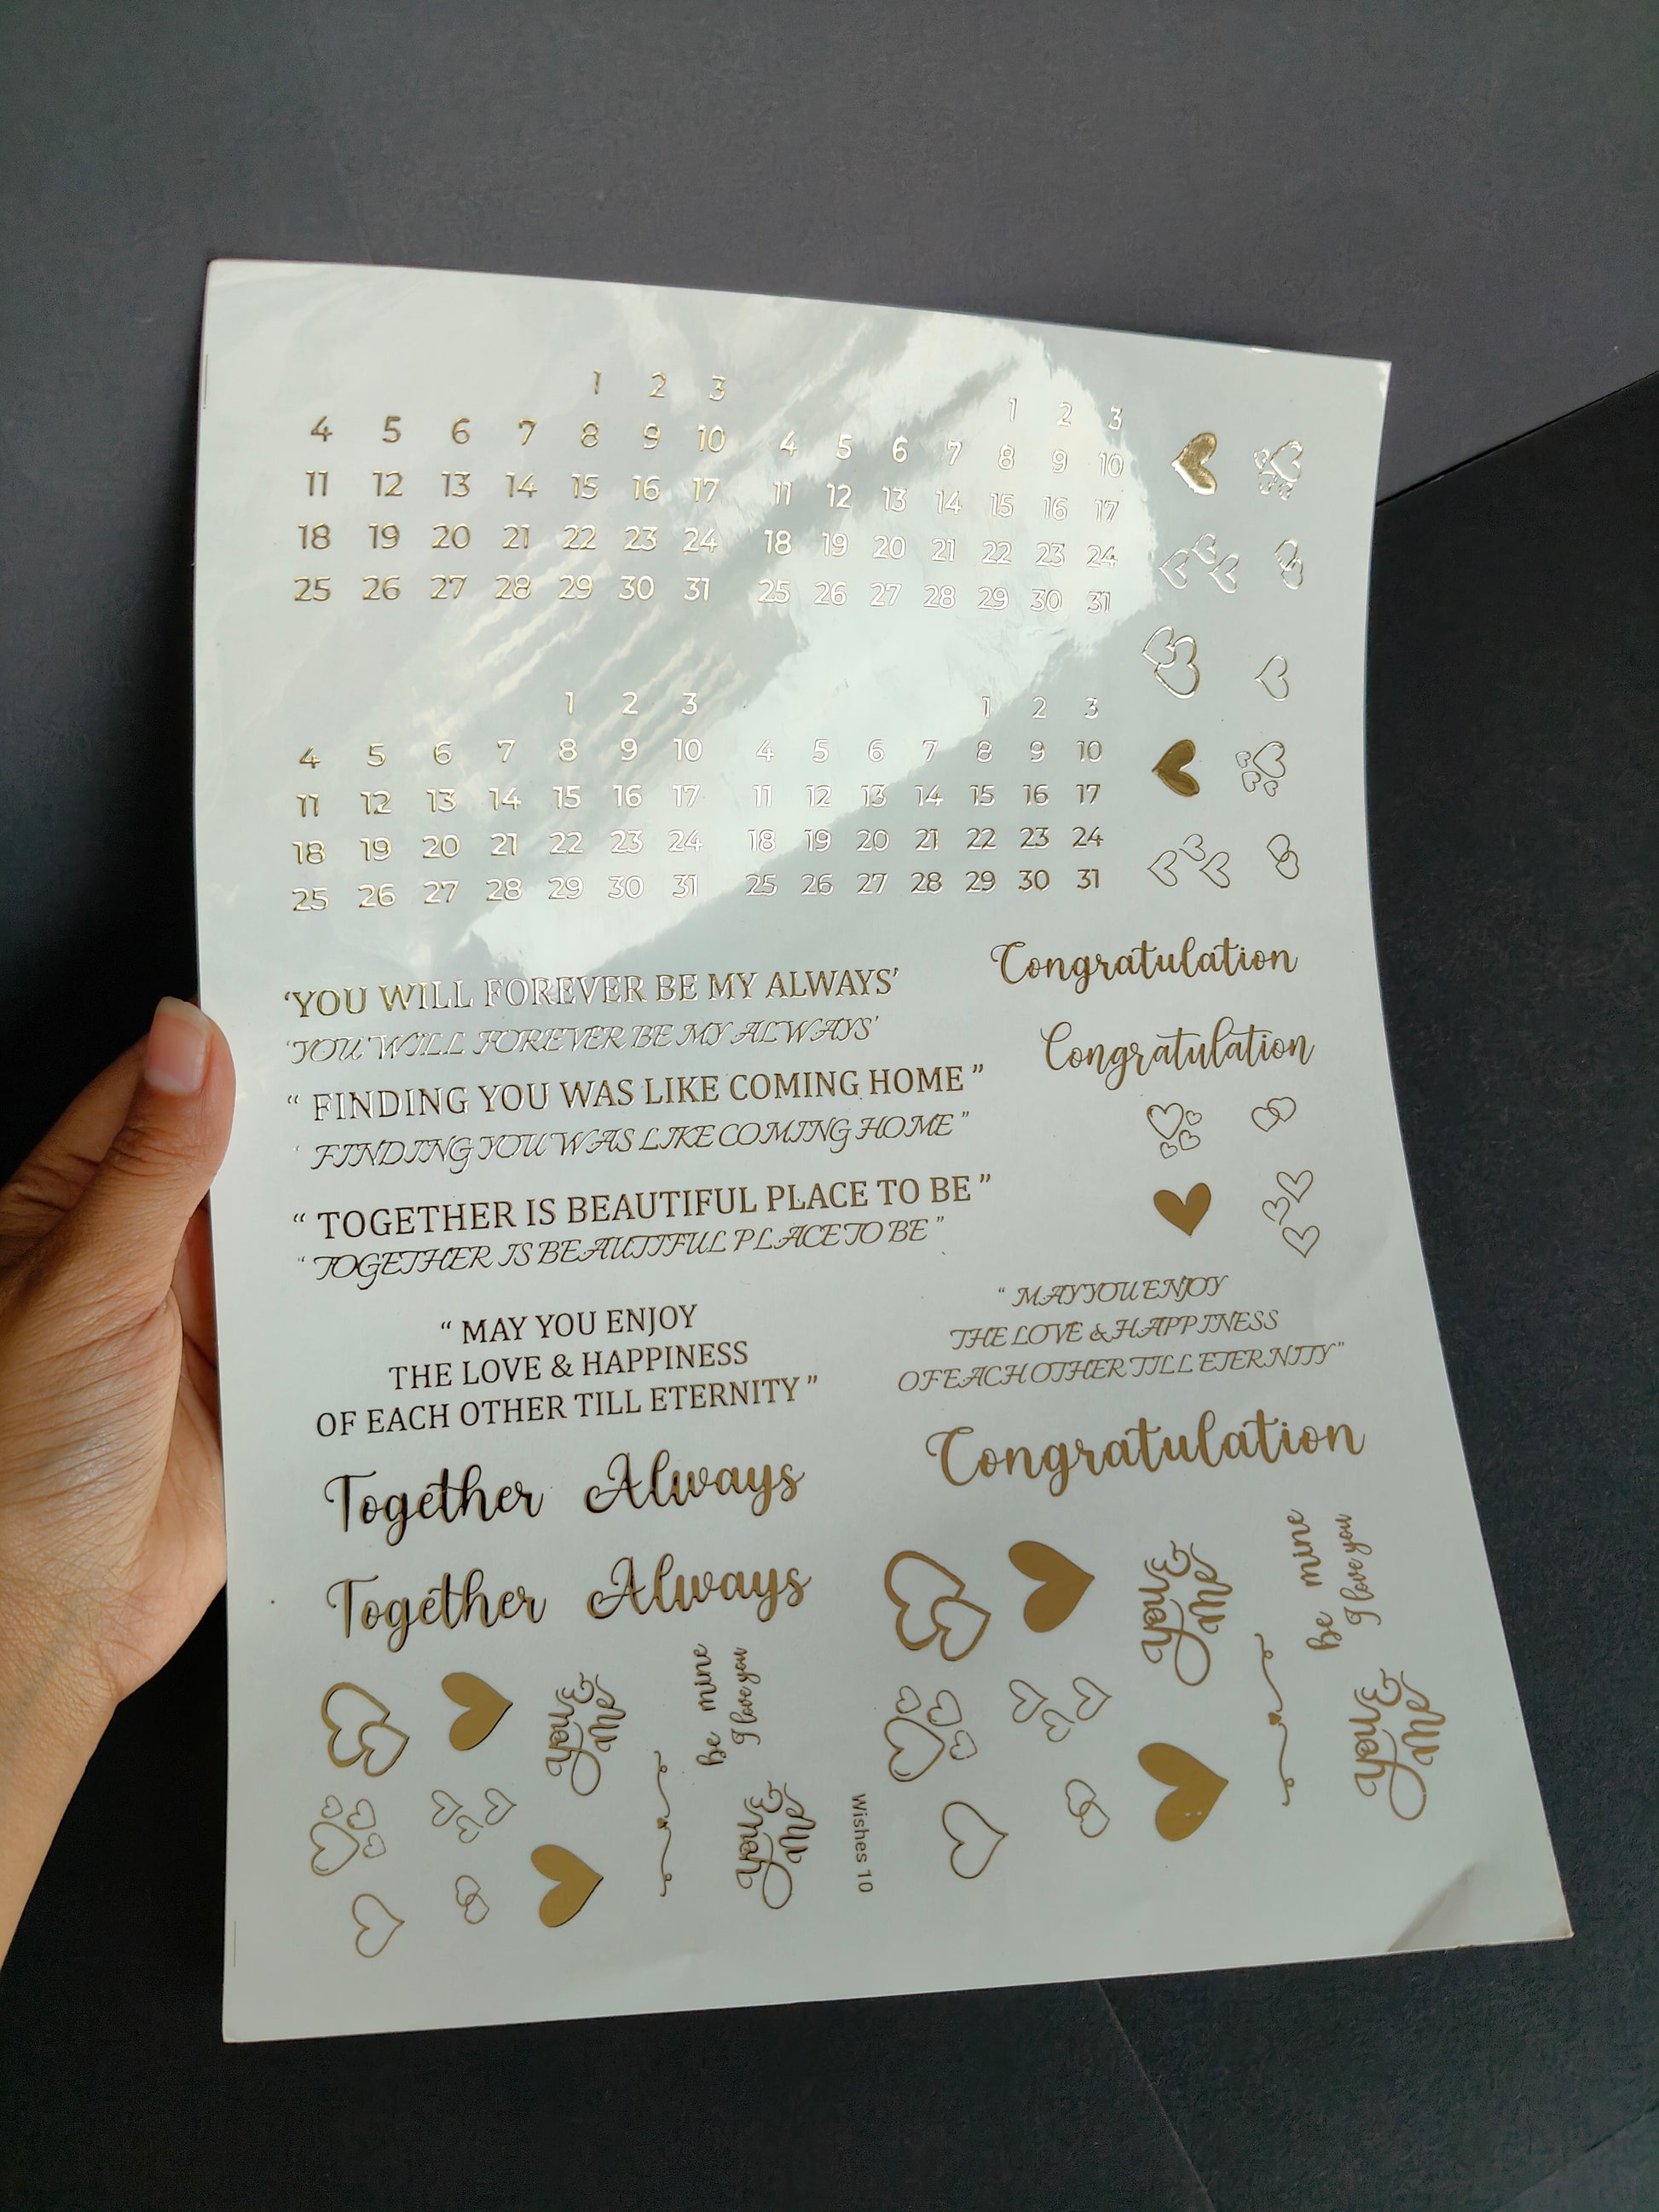 1 2 3
4 5 6 7 8 9 10
11 12 13 14 15 16 17
18 19 20 21 22 23 24
25 26 27 28 29 30 31
1 2 3
4 5 6 7 8 9 10
11 12 13 14 15 16 17
18 19 20 21 22 23 24
25 26 27 28 29 30 31
1 2 3
4 5 6 7 8 9 10
11 12 13 14 15 16 17
18 19 20 21 22 23 24
25 26 27 28 29 30 31
1 2 3
4 5 6 7 8 9 10
11 12 13 14 15 16 17
18 19 20 21 22 23 24
25 26 27 28 29 30 31
‘YOU WILL FOREVER BE MY ALWAYS’
‘YOU WILL FOREVER BE MY ALWAYS’
“ FINDING YOU WAS LIKE COMING HOME ”
“ FINDING YOU WAS LIKE COMING HOME ”
“ TOGETHER IS BEAUTIFUL PLACE TO BE ”
“ TOGETHER IS BEAUTIFUL PLACE TO BE ”
Congratulation
Congratulation
“ MAY YOU ENJOY
THE LOVE & HAPPINESS
OF EACH OTHER TILL ETERNITY ”
“ MAY YOU ENJOY
THE LOVE & HAPPINESS
OF EACH OTHER TILL ETERNITY ”
Together Always
Together Always
Congratulation
You &
Me
be mine
I love you
You &
Me
Wishes 10
You &
Me
be mine
I love you
You &
Me